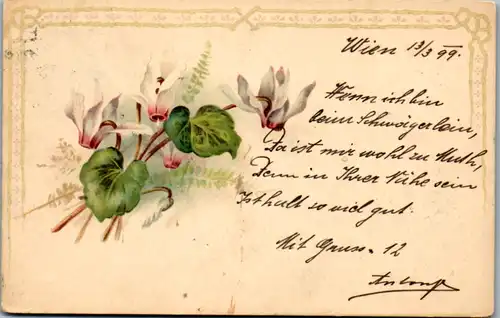 Wien 13/3 99.
Wenn ich bin
beim Schwägerlein,
Da ist mir wohl zu Muth,
Denn in Ihrer Nähe sein
Ist halt so viel gut.
Mit Gruss 12